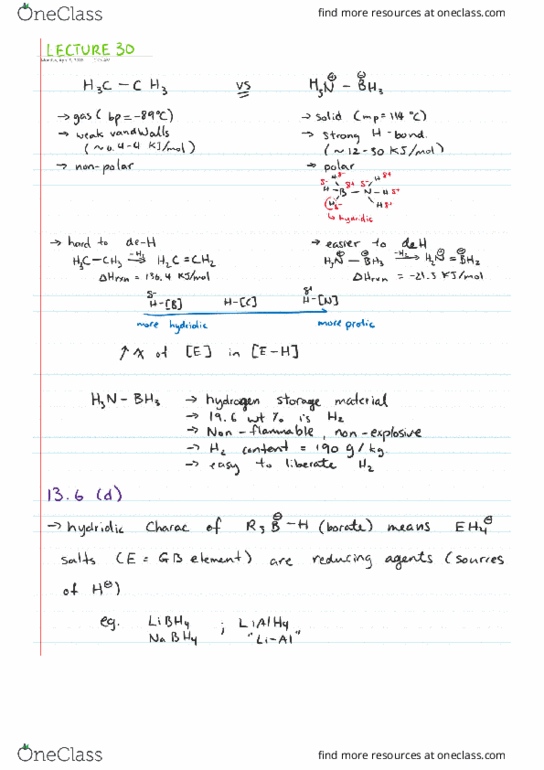 OneClass
find more resources at oneclass.com
LECTURE 30
H₃C – CH₃ vs H₃N⊕ – B⊖H₃
→ gas (bp = -89°C)
→ weak vandWalls
(~0.4-4 KJ/mol)
→ non-polar
→ solid (mp = 114 °C)
→ strong H-bond.
(~12-30 KJ/mol)
→ polar
δ- H δ- δ+ δ- H δ+
H – B – N – H δ+
H δ- H δ+
↳ hydridic
→ hard to de-H
H₃C–CH₃ –H₂ H₂C=CH₂
ΔHrxn = 136.4 KJ/mol
→ easier to deH
H₃N⊕ – B⊖H₃ –H₂→ H₂N⊕ = B⊖H₂
ΔHrxn = -21.3 KJ/mol
δ- H-[B] H-[C] δ+ H-[N]
more hydridic more protic
↑ X of [E] in [E-H]
H₃N – BH₃ → hydrogen storage material
→ 19.6 wt % is H₂
→ Non-flammable, non-explosive
→ H₂ content = 190 g/kg
→ easy to liberate H₂
13.6 (d)
→ hydridic Charac of R₃B⊖-H (borate) means EH₄⊖
salts (E = GB element) are reducing agents (sources
of H⊖)
eg. LiBH₄ ; LiAlH₄
NaBH₄ "Li-Al"
OneClass
find more resources at oneclass.com